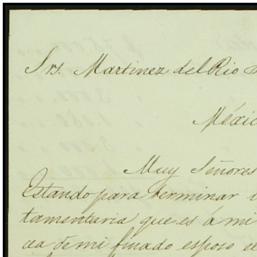 Srs. Martinez del Rio
Méxic
Muy Señores
Estando para terminar
tamentaria que es á mi
cea de mi finado esposo el